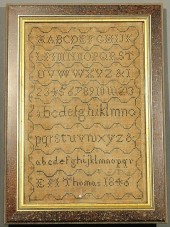 ABCDEFGHIJK
LMNOPQRST
UVWWXYZ&1
234567891011
abcdefghijklmno
pqrstuvwxyz&
abcdefghijklmnopqr
Thomas 1846